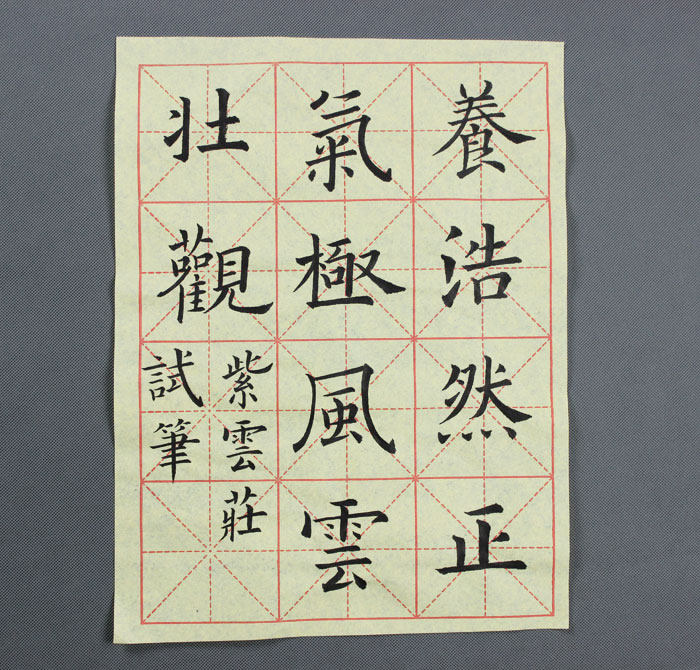 養浩然正
氣極風雲
壯觀
紫雲莊
試筆